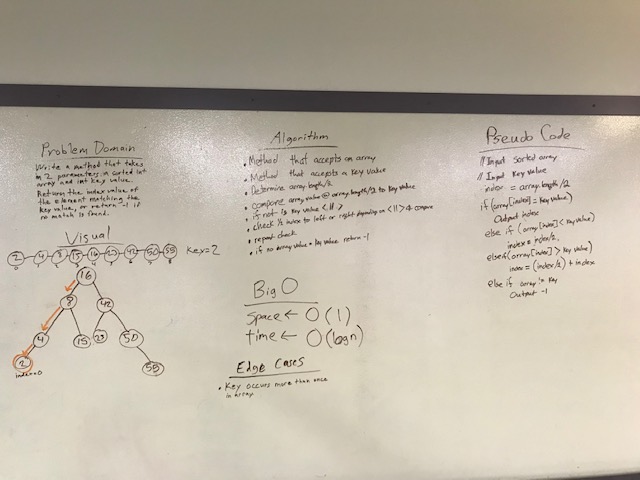 Problem Domain
Write a method that takes
in 2 parameters: a sorted int
array and int key value.
Return the index value of
the element matching the
key value, or return -1 if
no match is found.
Visual
2 4 8 15 16 23 42 50 55 Key=2
16
8 42
4 15 23 50
2 55
index=0
Algorithm
• Method that accepts an array
• Method that accepts a key value
• Determine array.length/2
• compare array value @ array.length/2 to key value
• if not is key value < || >
• check ½ index to left or right depending on < || > & compare
• repeat check
• if no array value = key value return -1
Big O
space ← O(1)
time ← O(logn)
Edge Cases
• Key occurs more than once
in array.
Pseudo Code
// Input sorted array
// Input Key Value
index = array.length/2
if(array[index] = Key value)
Output index
else if (array[index] < Key value)
index = index/2,
else if(array[index] > Key value)
index = (index/2) + index
else if array != Key
Output -1